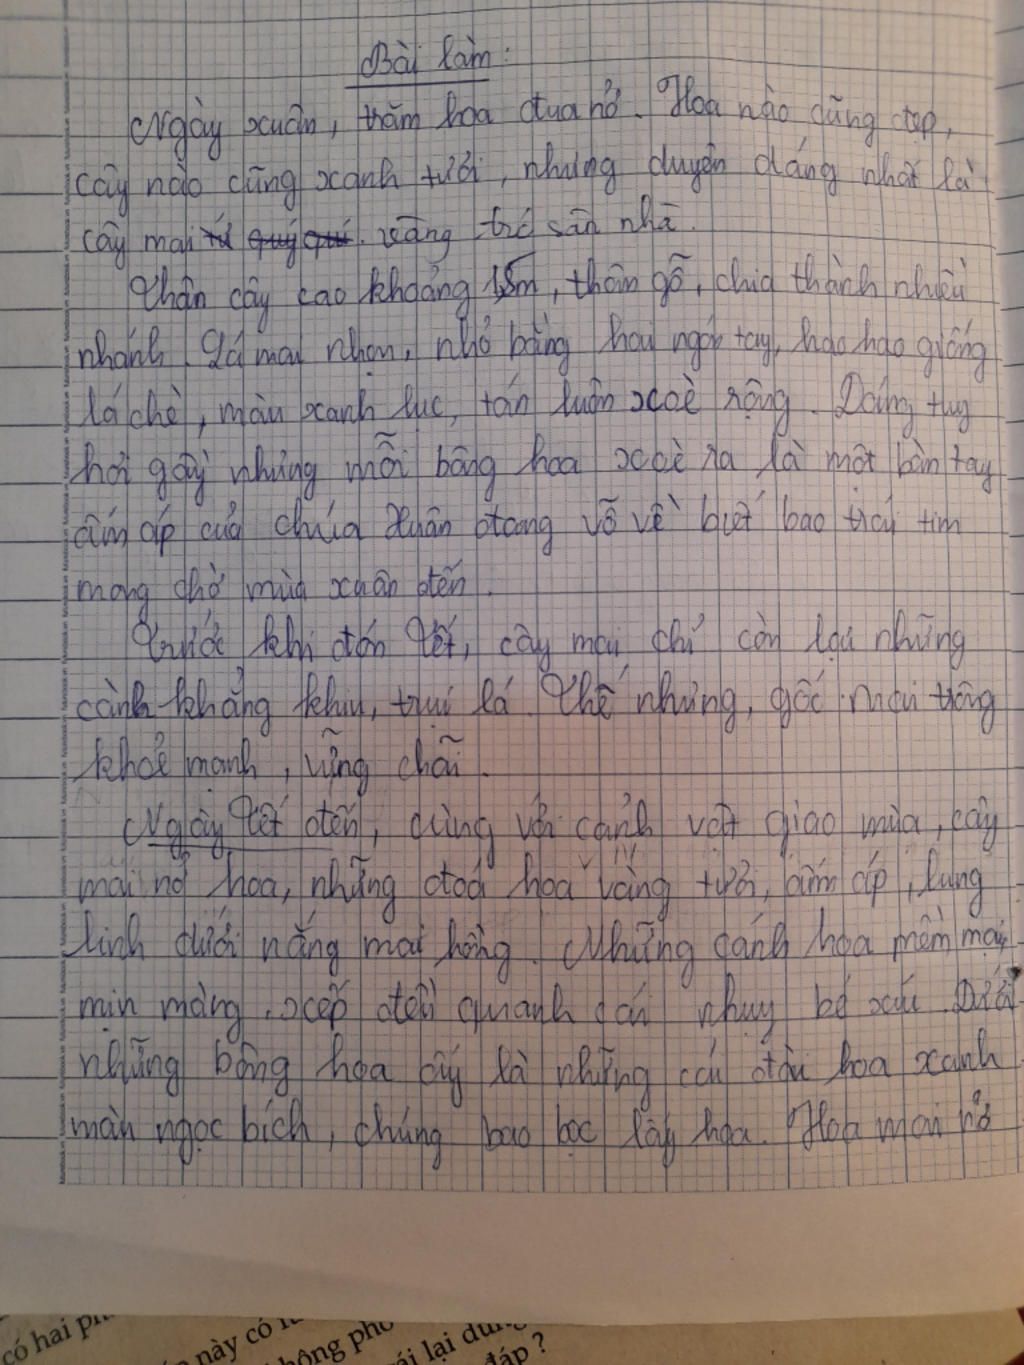 Bài làm:
Ngày xuân, trăm hoa đua nở. Hoa nào cũng đẹp,
cây nào cũng xanh tươi, nhưng duyên dáng nhất là
cây mai tứ quý quí vàng trước sân nhà.
Thân cây cao khoảng 1,5m, thân gỗ, chia thành nhiều
nhánh. Lá mai nhọn, nhỏ bằng hai ngón tay, hao hao giống
lá chè, màu xanh lục, tán luôn xoè rộng. Dáng tuy
hơi gầy nhưng mỗi bông hoa xoè ra là một bàn tay
ấm áp của chúa Xuân đang vỗ về biết bao trái tim
mong chờ mùa xuân đến.
Trước khi đón Tết, cây mai chỉ còn lại những
cành khẳng khiu, trụi lá. Thế nhưng, gốc mai trông
khoẻ mạnh, vững chãi.
Ngày Tết đến, cùng với cảnh vật giao mùa, cây
mai nở hoa, những đoá hoa vàng tươi, ấm áp, lung
linh dưới nắng mai hồng. Những cánh hoa mềm mại,
mịn màng, xếp đều quanh cái nhuỵ bé xíu. Dưới
những bông hoa ấy là những cái đài hoa xanh
màu ngọc bích, chúng bao bọc lấy hoa. Hoa mai nở
có hai
này có
không
lại
đáp ?